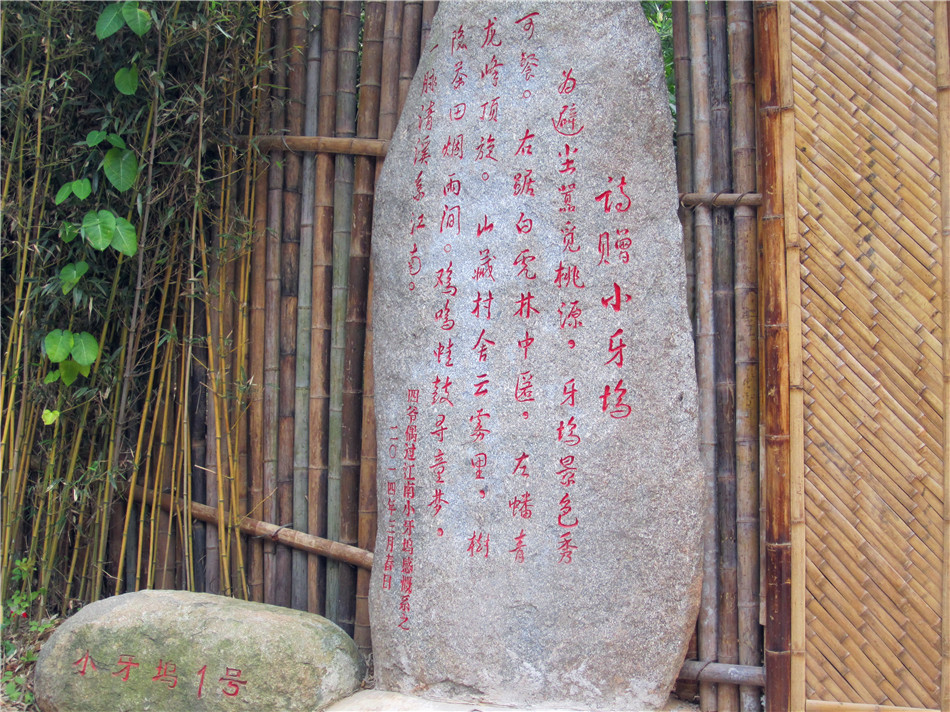 诗赠小牙坞
为避尘嚣觅桃源。牙坞景色秀
可餐。右踞白虎林中匿。左蟠青
龙峰顶旋。山藏村舍云雾里。樹
隐茶田烟雨间。鸡鸣蛙鼓寻童梦。
一脉清溪系江南。
四爷偶过江南小牙坞感慨系之
二〇一四年三月春日
小牙坞1号